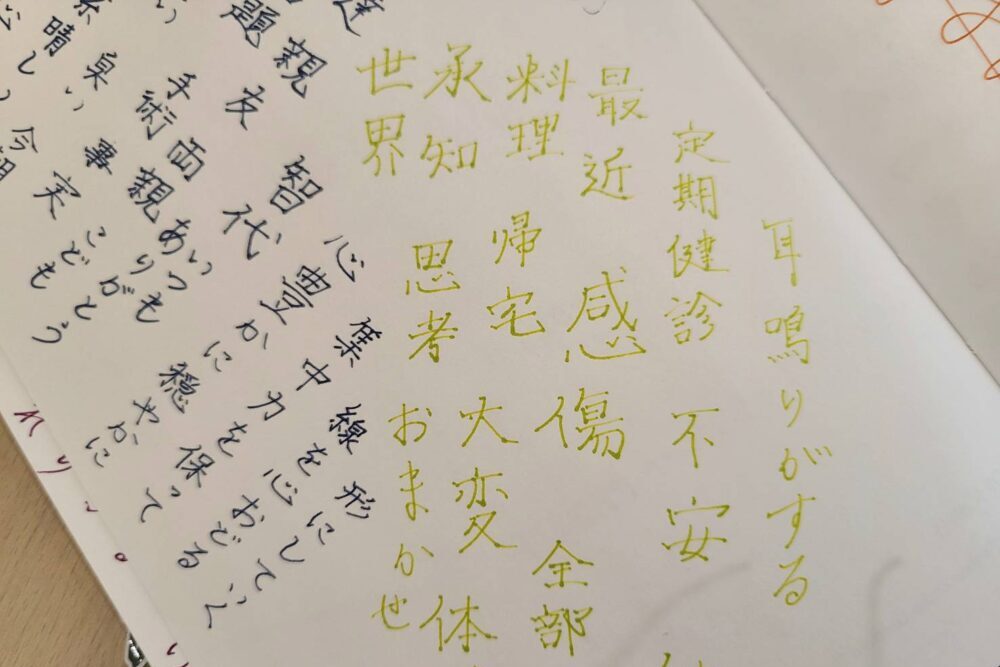 耳鳴りがする
定期健診 不安
最近 感傷 全部
料理 帰宅 大変 体
承知 思考 おまかせ
世界
形にしていく
線を心おどる
集中力を保って
心豊かに 穏やかに
智代 いつも ありがとう
親友 両親 こども
題 手術 事実
臭い
晴
今